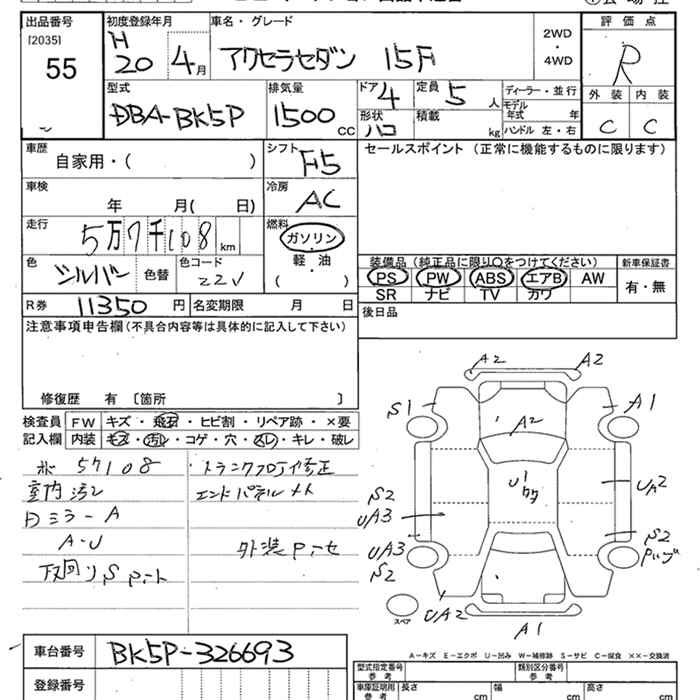 出品番号
[2035]
55
初度登録年月
H
20 4月
車名・グレード
アクセラセダン 15F
2WD
・
4WD
評価点
R
外装 内装
C C
型式
DBA-BK5P
排気量
1500cc
ドア
4
形状
ハコ
定員
5人
積載
kg
ディーラー・並行
モデル年式 年
ハンドル 左・右
車歴
自家用・( )
シフト
F5
セールスポイント(正常に機能するものに限ります)
車検
年 月( 日)
冷房
AC
走行
5万7千108km
燃料
ガソリン
・
軽油
・
( )
色
シルバー
色替
色コード
22V
装備品(純正品に限り○をつけてください)
PS PW ABS エアB AW
SR ナビ TV カワ
新車保証書
有・無
R券 11350円
名変期限 月 日
後日品
注意事項申告欄(不具合内容等は具体的に記入して下さい)
修復歴 有 〔箇所 〕
検査員記入欄
FW キズ・飛石・ヒビ割・リペア跡・×要
内装 キズ・汚れ・コゲ・穴・スレ・キレ・破レ
57108
室内汚レ
Dミラー A
A-U
下廻りS
トランクフロアイ修正
エンドパネル
外装
A2 A2
S1 A1
A2
U1
S2
UA3
UA2
UA3
S2
S2
UA2
A1
スペア
A-キズ E-エクボ U-凹み W-補修跡 S-サビ C-腐食 ××-交換済
車台番号
BK5P-326693
登録番号
型式指定番号
参考
類別区分番号
参考
車庫証明用
参考
長さ cm
幅 cm
高さ cm